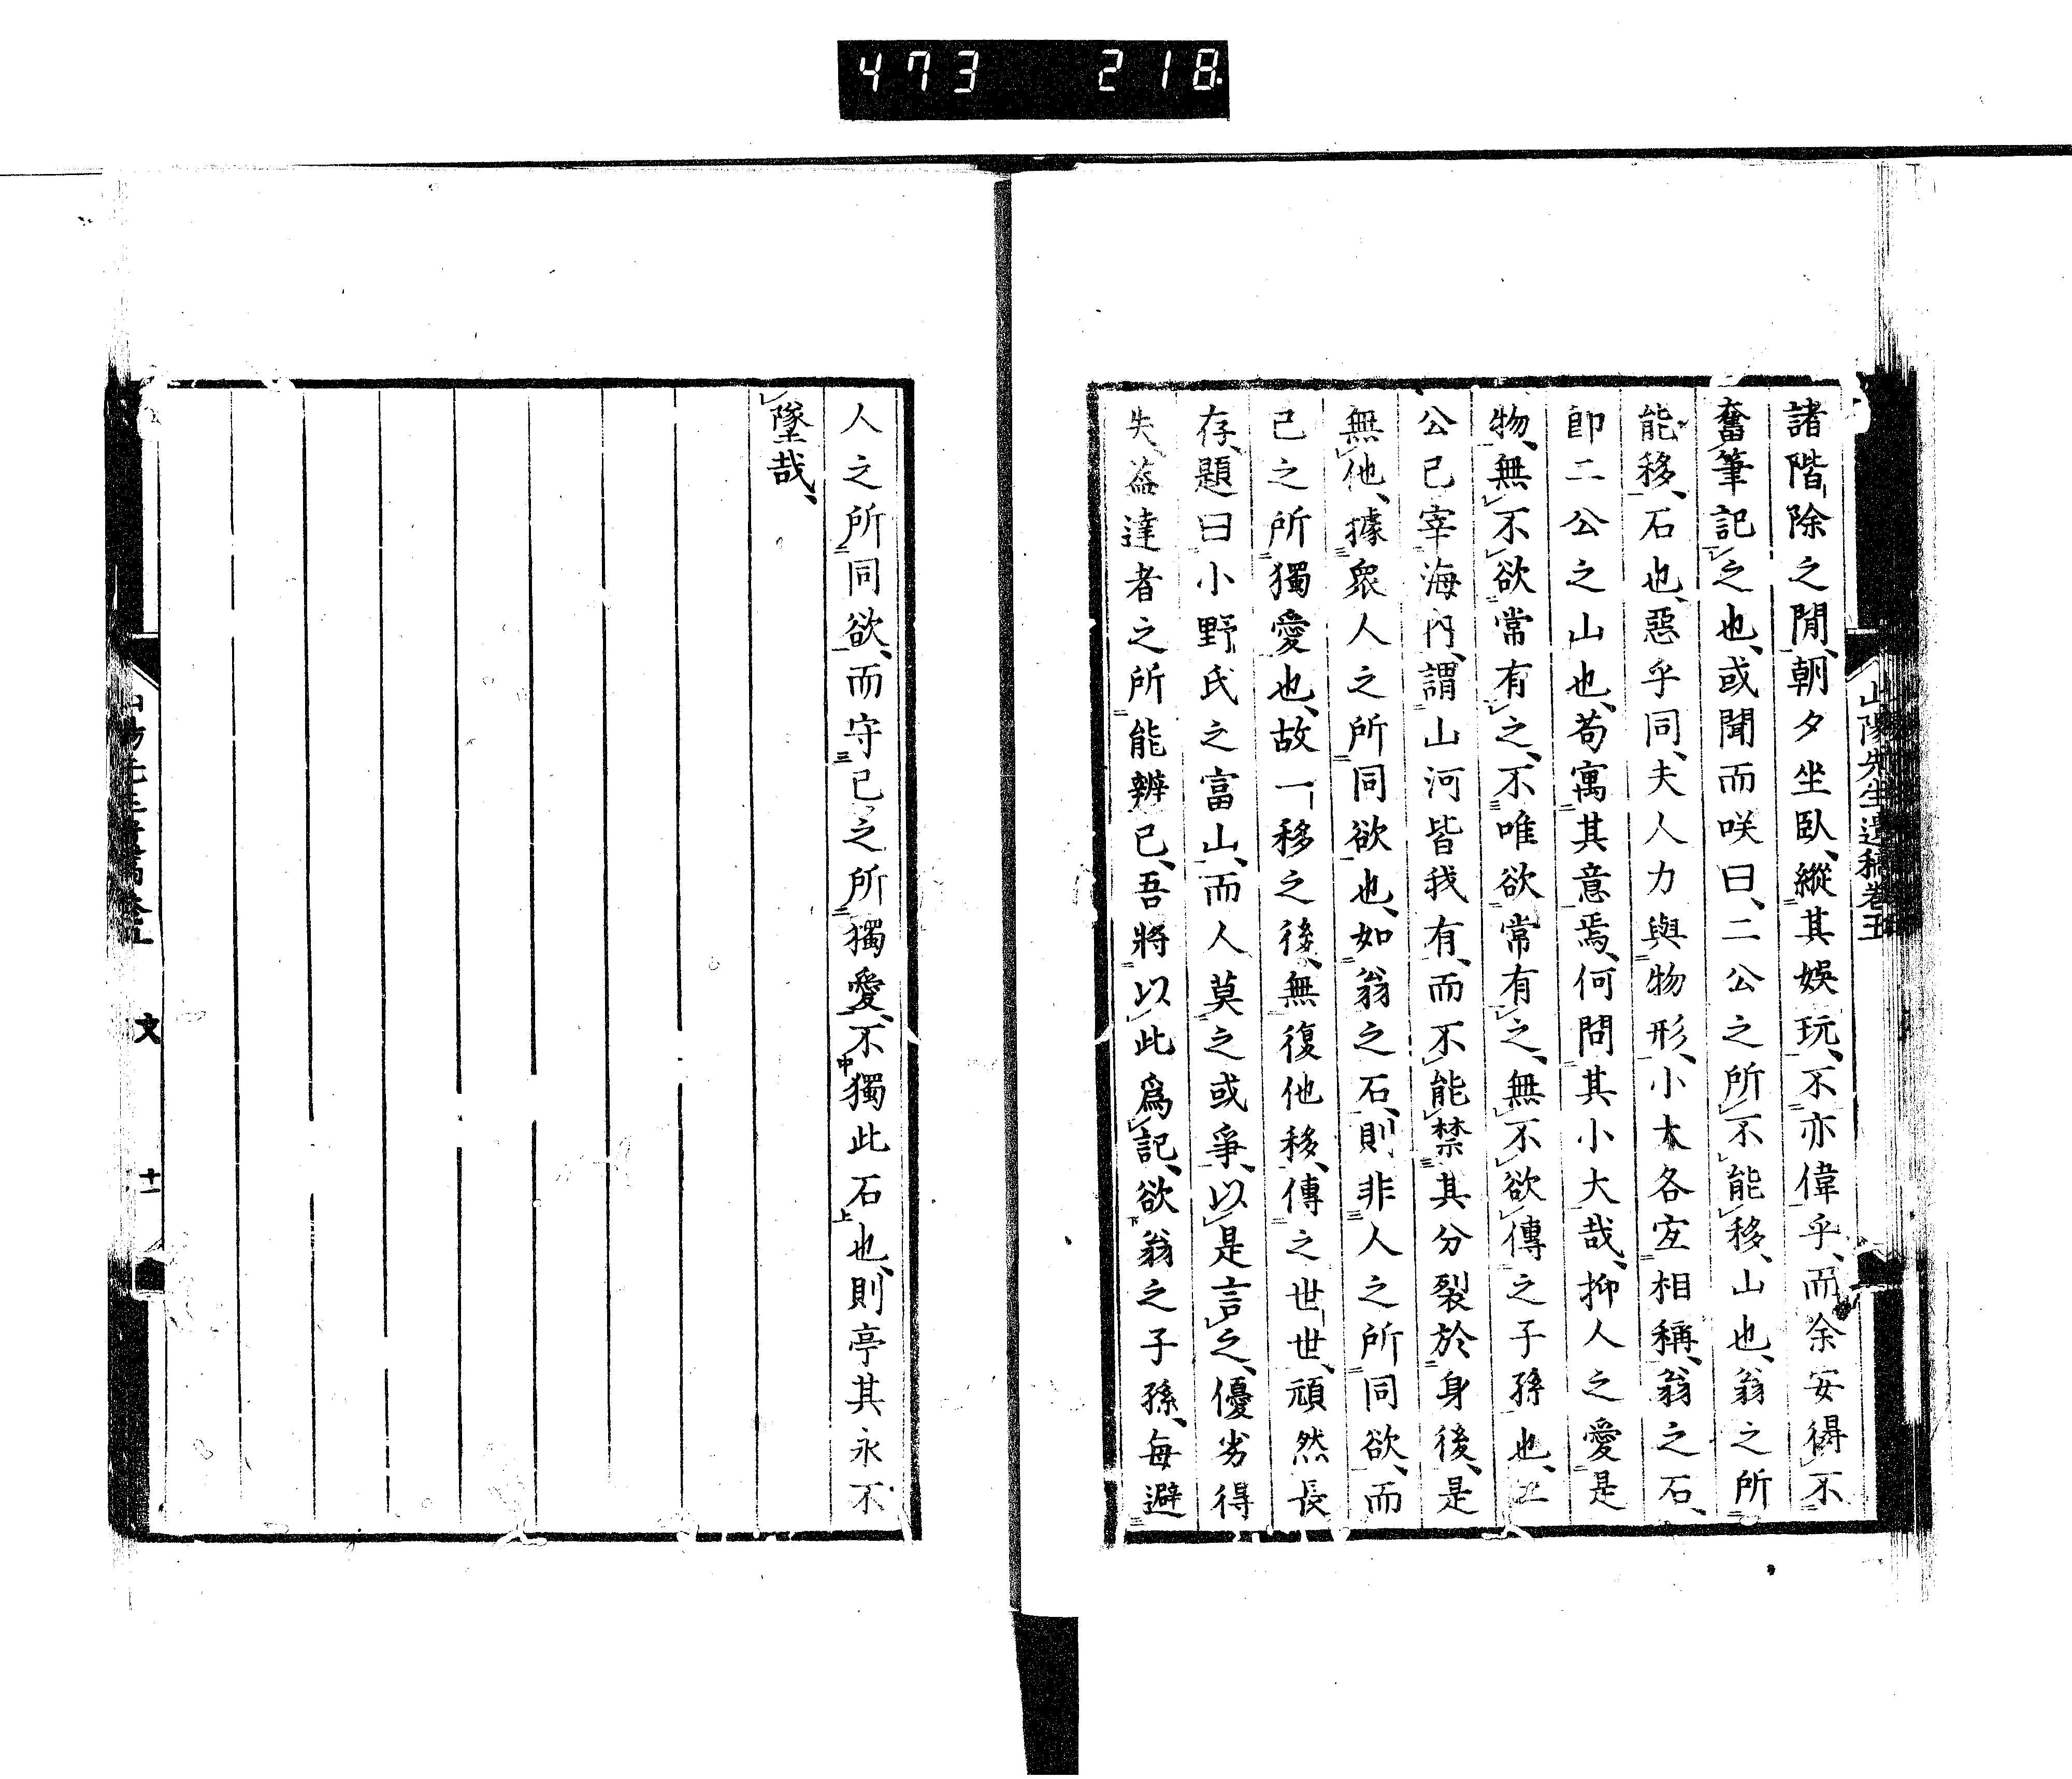 473 218
山陽先生遺稿卷五
諸階除之間、朝夕坐臥、縱其娛玩、不亦偉乎、而余安得不
奮筆記之也、或聞而咲曰、二公之所不能移、山也、翁之所
能移、石也、惡乎同、夫人力與物形、小大各宐相稱、翁之石、
卽二公之山也、苟寓其意焉、何問其小大哉、抑人之愛是
物、無不欲常有之、不唯欲常有之、無不欲傳之子孫也、二
公已宰海內、謂山河皆我有、而不能禁其分裂於身後、是
無他、據衆人之所同欲也、如翁之石、則非人之所同欲、而
己之所獨愛也、故一移之後、無復他移、傳之世世、頑然長
存、題曰小野氏之富山、而人莫之或爭、以是言之、優劣得
失、益達者之所能辨已、吾將以此爲記、欲翁之子孫、每避
人之所同欲、而守己之所獨愛、不獨此石也、則亭其永不
墜哉、
文
十一